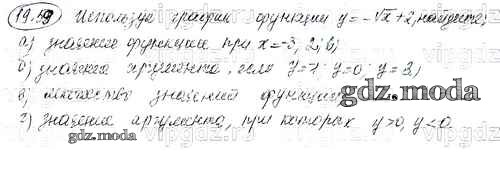 19.49 Используя график функции y = -√x + 2, найдите:
а) значение функции, при x = -3, 2; 6)
б) значения аргумента, если y = 1; y = 0; y = 3)
в) множество значений функции
dgz.moda
г) значение аргумента, при которых y > 0, y < 0.
dgz.moda